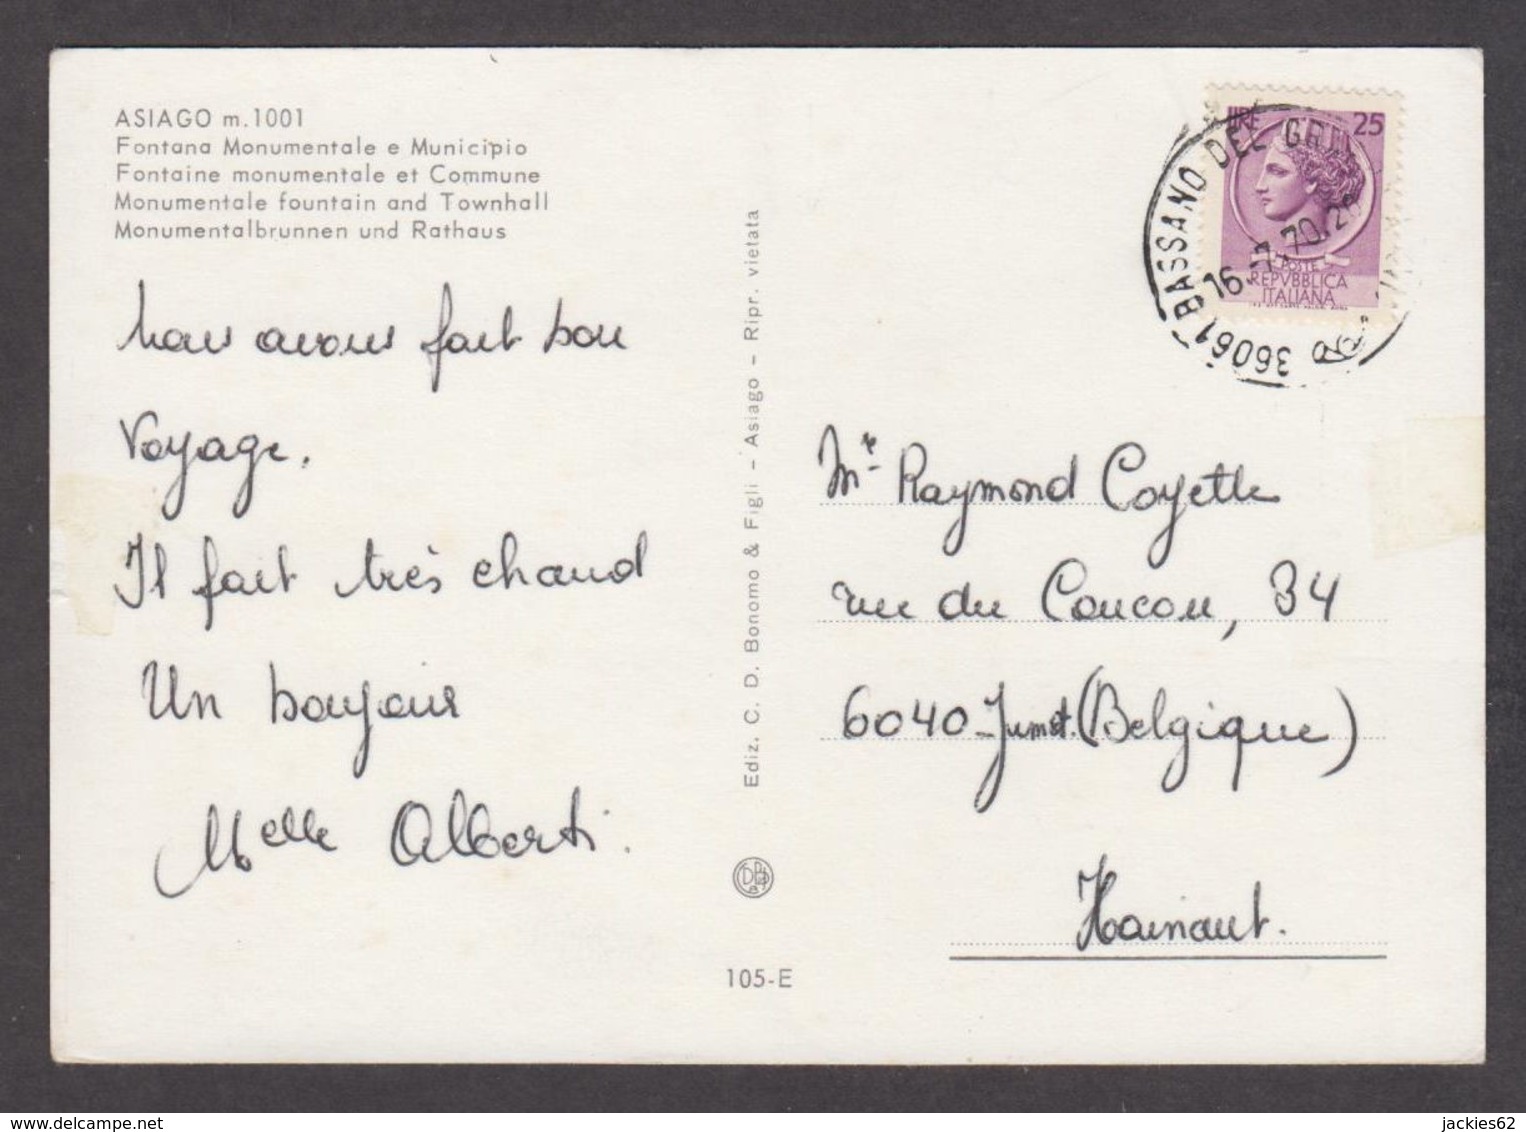 ASIAGO m.1001
Fontana Monumentale e Municipio
Fontaine monumentale et Commune
Monumentale fountain and Townhall
Monumentalbrunnen und Rathaus
Nous avons fait bon
voyage.
Il fait très chaud
Un bonjour
Melle Alberti.
Ediz. C. D. Bonomo & Figli - Asiago - Ripr. vietata
105-E
LIRE 25
POSTE
REPVBBLICA
ITALIANA
36061 BASSANO DEL GR
16.-7.70.20
Mr Raymond Coyette
rue du Coucou, 34
6040 - Jumet. (Belgique)
Hainaut.
delcampe.net
jackies62